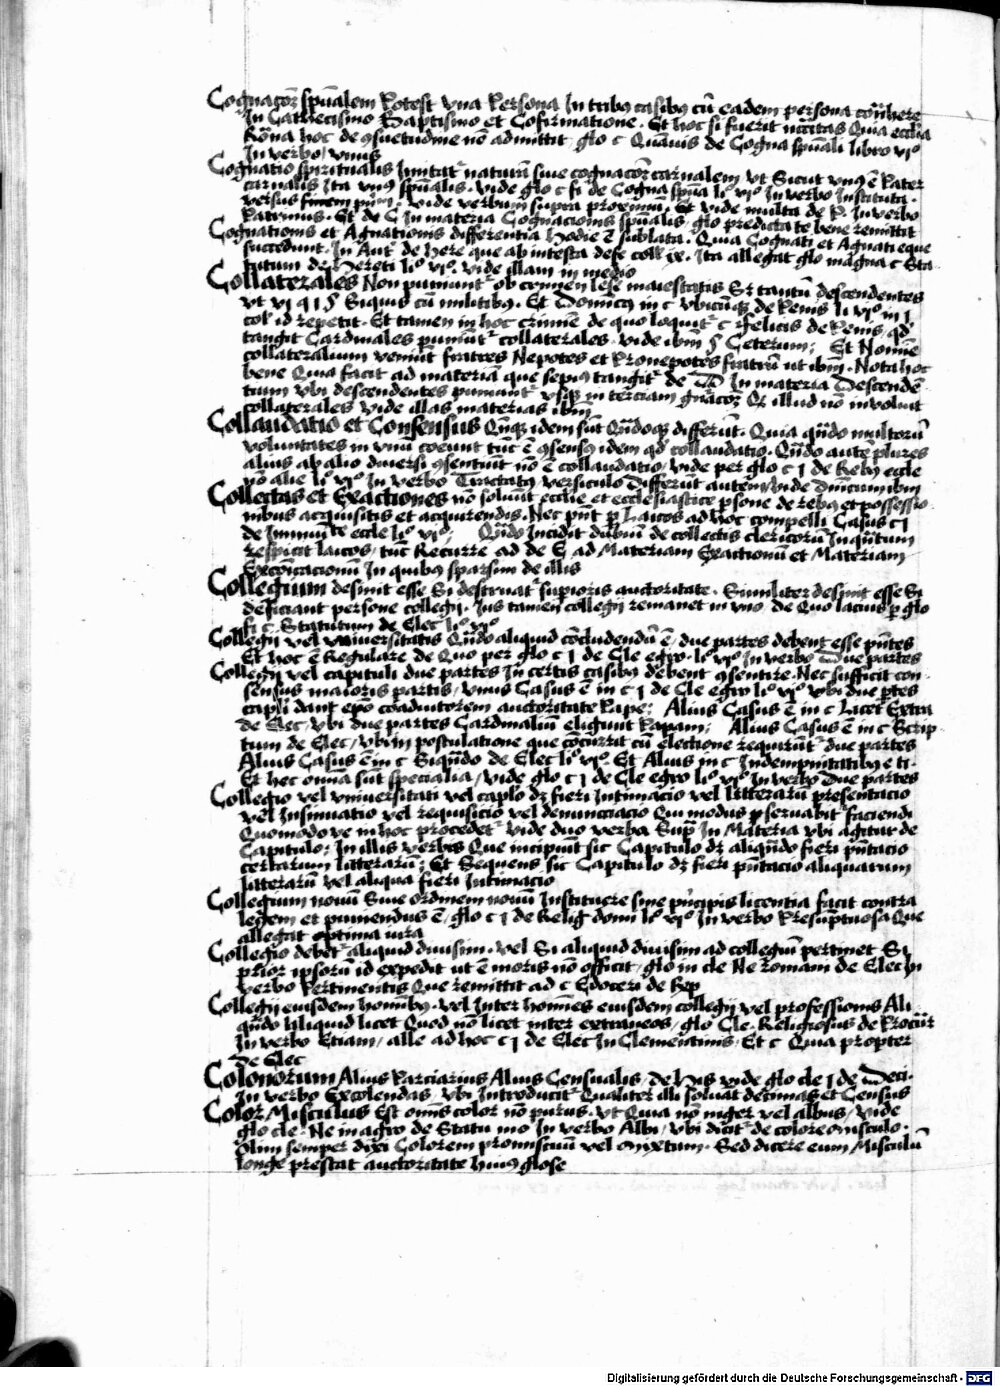 Cognacōȝ spūalem Potest vna Persona In tribꝫ casibꝫ cū eadem persona cont͞here
In Cathecismo Baptismo et Cofirmatione · Et hoc si fuerit n͞ccitas Quia ecc͞lia
Ro͞na hoc de ꝯsuetudine nō admittit glo c Quāuis de Cogna spūali libro vjº
In verbo vnus
Cognatio spiritualis Imitat᷑ naturā siue cognacōȝ carnalem vt Sicut vnꝫ ē Pater
carnalis Ita vnꝫ spūalis · vide glo c fi de Cogna spūa liº vjº In verbo Instituta ·
versus finem · vide verbum supra proximū · Et vide multa de P · In verbo
Patrinus · Et de C In materia Cognacionis spūalis glo predicta te bene remittit
Cognationis et Agnationis differentia hodie ē sublata · Quia Cognati et Agnati eque
succedunt · In Aut᷑ de here que ab intesta defe coll ix · Ita allegat glo magna c Sta
tutum de Hereti liº vjº · vide illam in medio
Collaterales Non puniunt᷑ ob crimen lese maiestatis Sȝ tantū descendentes
vt vj q j § Siquis cū militibꝫ · Et Dominꝰ in c vbicūqȝ de Penis li vjº in j
col id repetit · Et tamen in hoc crimīe de quo loquit᷑ c felicis de Penis qd͛
tangit Cardinales puniūt᷑ collaterales · vide ibm § Ceterum ; Et Nomīe
collateralium veniūt fratres Nepotes et Pronepotes fratrū ut ibm · Nota hoc
bene Quia facit ad materiā que sepiꝰ tangit᷑ de D In materia Descendē
tium vbi descendentes puniunt᷑ vsqȝ in terciam gn͞acōȝ Qȝ illud nō involuit
collaterales vide illas materias ibm
Collaudatio et Consensus Qn͞qȝ idem sūt Qn͞doqȝ differūt · Quia qn͞do multorū
voluntates in vnū coeunt tūc ē ꝯsensꝫ idem qd͛ collaudatio · Qn͞do autē plures
alius ab alio diuersi ꝯsentiūt nō ē collaudatio / vide per glo c j de Rebꝫ eccle
nō alie liº vjº In verbo Tractatꝫ versiculo Differūt autem / vide Dn͞icum ibm
Collectas et Exactiones nō soluūt ecclie et ecclesiastice ꝑsone de rebꝫ et possessio
nibus acquisitis et acquirendis · Nec pn͞t ꝑ Laicos ad hoc compelli Casus c j
de Immuni͞te eccle liº vjº ; Qn͞do Incidit dubiū de collectis clericorū Inqn͞tum
respicit laicos / tūc Recurre ad de E ad Materiam Exactionū et Materiam
Excōicacionū In quibꝫ sparsim de illis
Collegium desinit esse Si destruat᷑ supioris auctoritate · Similiter desinit esse Si
deficiant persone collegij · Ius tamen collegij remanet in vno de Quo lacius ꝑ glo
fi c · Statutum de Elec liº vjº
Collegij vel vniuersitatis Qn͞do aliquid cōcludendū ē / due partes debent esse pn͞tes
Et hoc ē Regulare de Quo per glo c j de Cle egro · liº vjº In verbo Due partes
Collegij vel capituli due partes In certis casibꝫ debent ꝯsentire · Nec sufficit con
sensus maioris partis / vnus Casus ē in c j de Cle egro liº vjº vbi due ꝑtes
capli dant ep͞o coadiutorem auctoritate Pape ; Alius Casus ē in c Licet Extra
de Elec / vbi due partes Cardinaliū eligunt Papam ; Alius Casus ē in c Scrip
tum de Elec / vbi in postulatione que cōcurrit cū electione requirūt᷑ due partes
Alius Casus ē in c Siqn͞do de Elec liº vjº · Et Alius in c Indempnitatibꝫ e ti ·
Et hec om͞ia sūt specialia / vide glo c j de Cle egro liº vjº In verbo Due partes
Collegio vel vniuersitati vel caplo dȝ fieri Intimacio vel litterarū presentacio
vel Insinuatio vel requisicio vel denunciacio Qui modus ꝑseruabit᷑ faciendi
Quomodo ve in hoc procedet᷑ vide duo verba Supͣ In Materia vbi agitur de
Capitulo ; In illis verbis Que incipiūt sic Capitulo dȝ aliqn͞do fieri pn͞tacio
certarum litterarū ; Et Sequens sic Capitulo dȝ fieri pn͞tacio aliquarum
litterarū vel aliqua fieri Intimacio
Collegium nouū Siue ordinem nouū Instituere sine pͥncipis licentia facit contra
legem et puniendus ē / glo c j de Relig domi liº vjº In verbo Presūptuosa Que
allegat optima iura
Collegio debet᷑ aliquid diuisim · vel Si aliquid diuisim ad collegiū pertinet Si
prior ipsorū id expedit ut ē moris nō officit / glo in cle Ne romani de Elec In
verbo Pertinentis Que remittit ad c Edoceri de Rep
Collegij eiusdem homībꝫ · vel Inter homīes eiusdem collegij vel professionis Ali
qn͞do aliquid licet Quod nō licet inter extraneos / glo Cle · Religiosus de Procur᷑
In verbo Etiam / alle ad hoc c j de Elec In Clementinis · Et c Quia propter
de Elec
Colonorum Alius Parciarius Alius Censualis / de His vide glo cle j de Deci ·
In verbo Excolendas / vbi Introducit᷑ Qualiter illi soluāt decimas et Census
Color Musculus Est om͞is color nō purus · vt Quia nō niger vel albus / vide
glo cle · Ne in agro de Statu mo In verbo Albi / vbi dicit᷑ de colore musculo ·
Olim semper dixi Colorem promiscuū vel mixtum · Sed dicere eum Musculū
longe prestat auctoritate huiꝫ glose
Digitalisierung gefördert durch die Deutsche Forschungsgemeinschaft - DFG